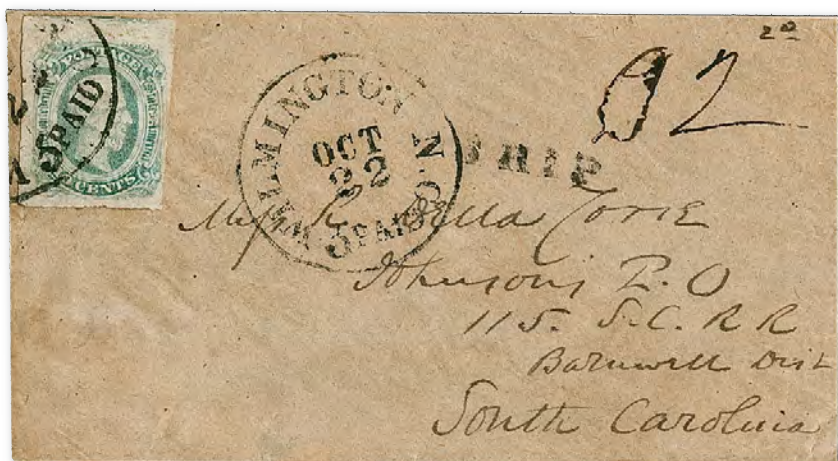 PAID
CENTS
WILMINGTON N.C.
OCT
22
5 PAID
SHIP
2
Miss K. Bella Torre
Johnson's P.O
115. S.C. R R
Barnwell Dist
South Carolina